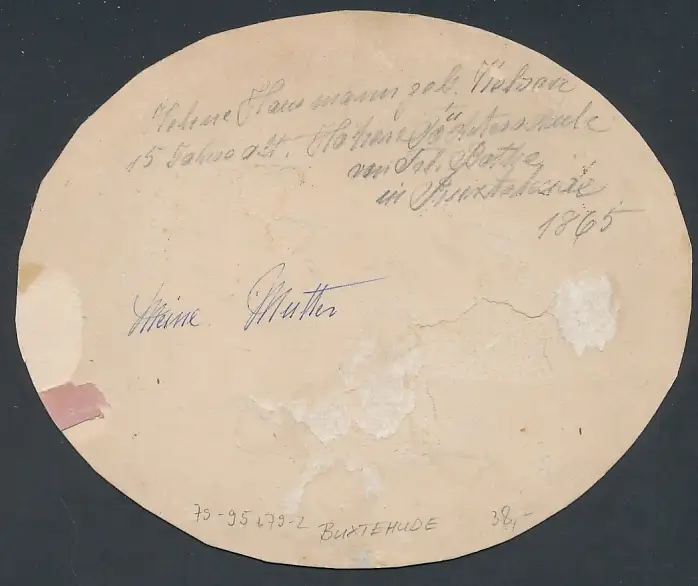 Helene Hausmann geb.
15 Jahre alt. Höhere Töchterschule
von Frl.
in Buxtehude
1865
Meine Mutter
79-95479-2 BUXTEHUDE 38,-